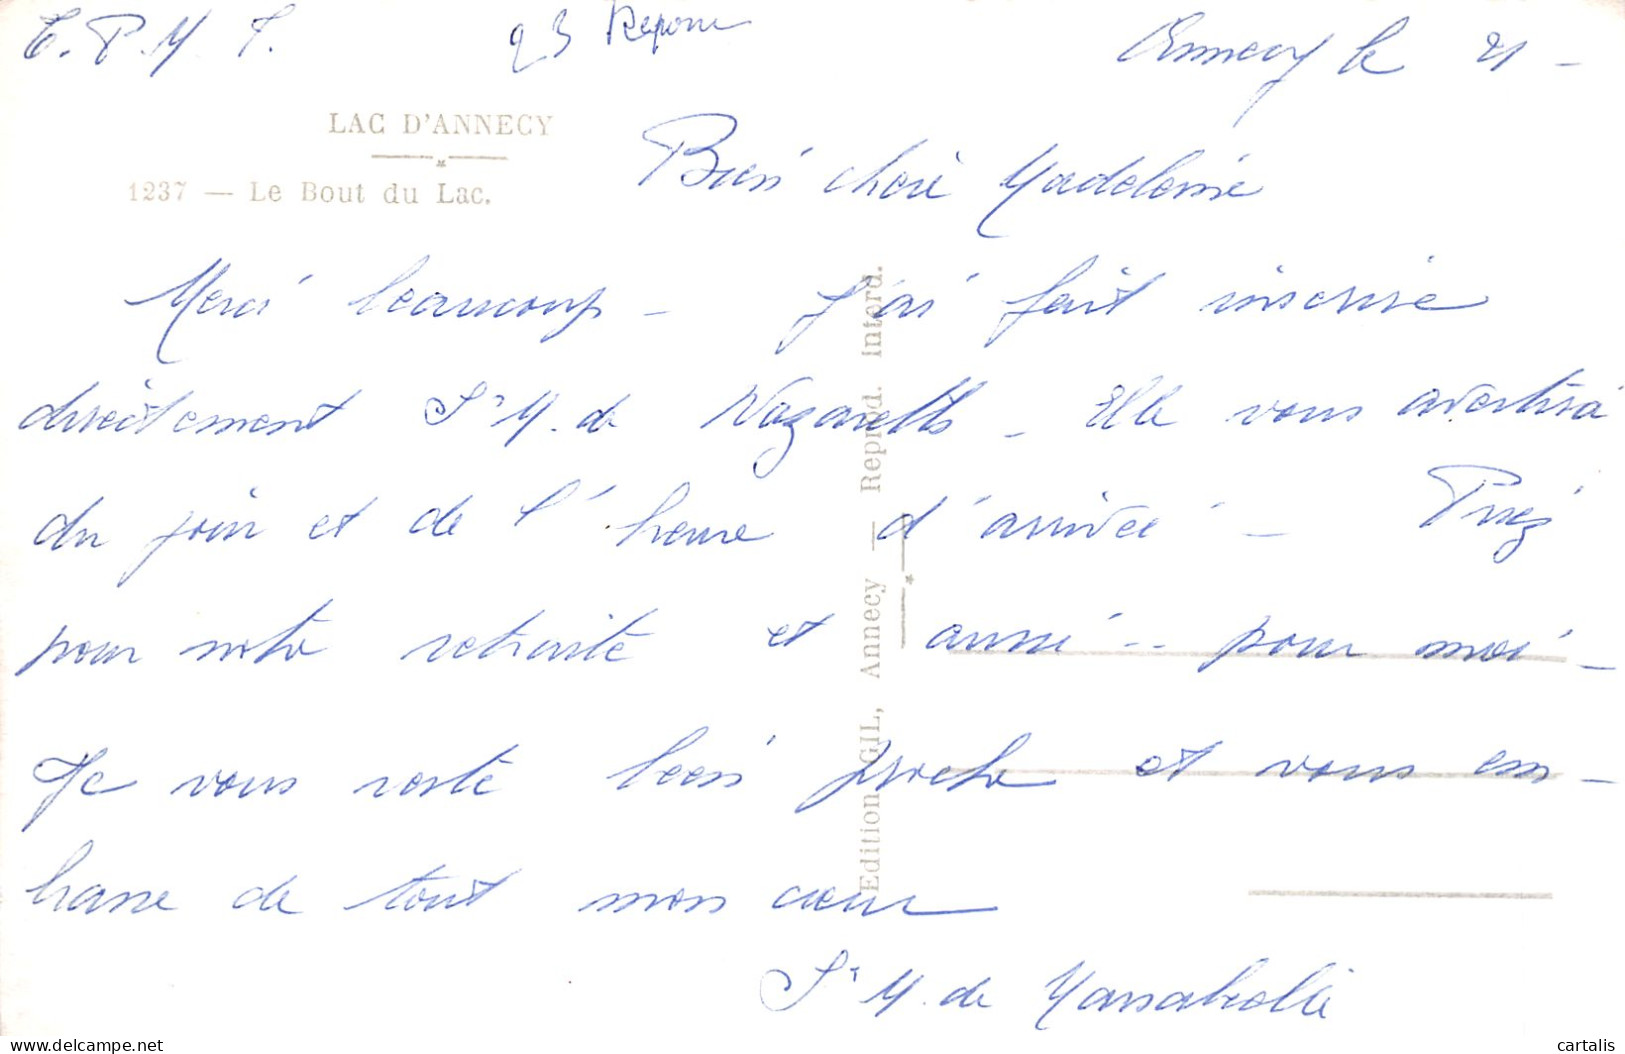 T. P. M. J.
23 Repon
Annecy le 21 -
LAC D'ANNECY
1237 — Le Bout du Lac.
Bien chère Madeleine
Merci beaucoup - J'ai fait inscrire
directement Sr M. de Nazareth - Elle vous avertira
du jour et de l'heure d'arrivée - Priez
pour notre retraite et aussi .. pour moi -
Je vous reste bien proche et vous em-
brasse de tout mon cœur
Sr M. de Massabielle
Edition GIL, Annecy — Reprod. interd.
delcampe.net
cartalis